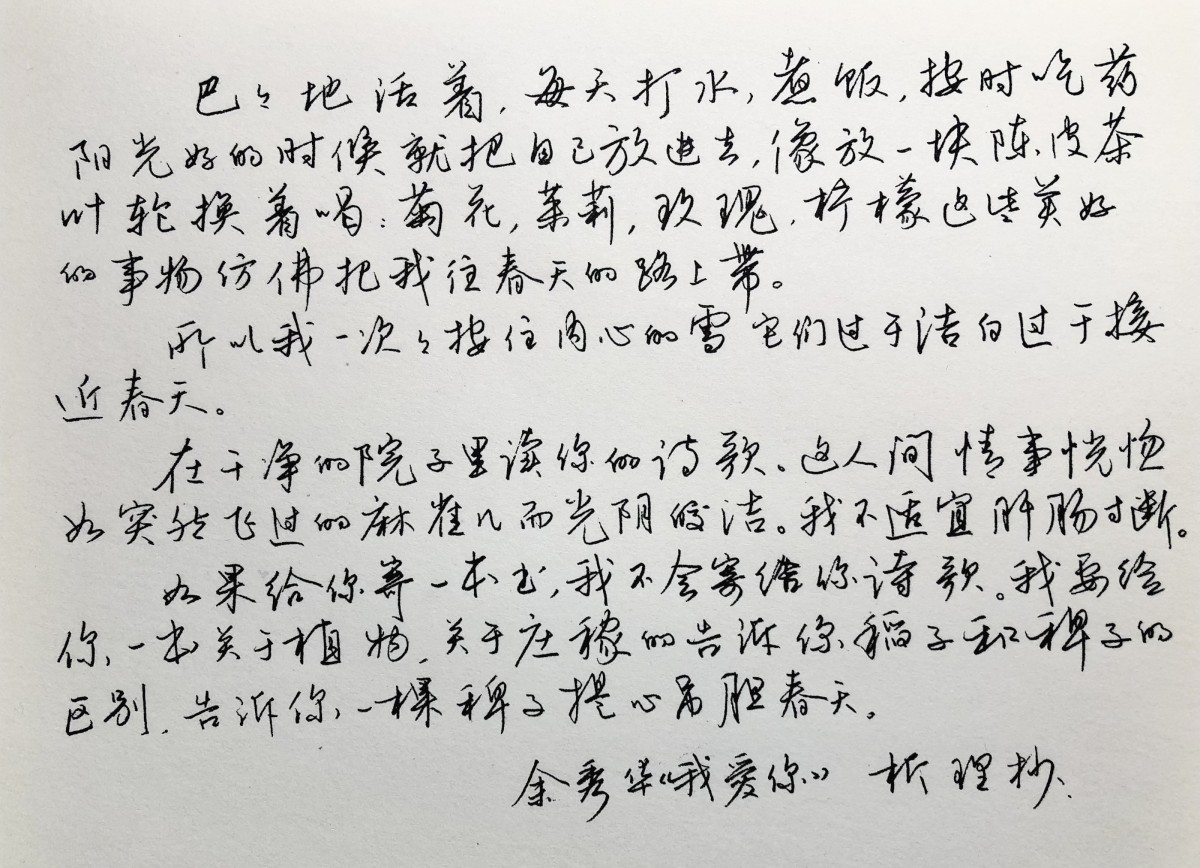 巴々地活着，每天打水，煮饭，按时吃药
阳光好的时候就把自己放进去，像放一块陈皮茶
叶轮换着喝：菊花，茉莉，玫瑰，柠檬这些美好
的事物仿佛把我往春天的路上带。
所以我一次々按住内心的雪它们过于洁白过于接
近春天。
在干净的院子里读你的诗歌。这人间情事恍惚
如突然飞过的麻雀儿而光阴皎洁。我不适宜肝肠寸断。
如果给你寄一本书，我不会寄给你诗歌。我要给
你一本关于植物，关于庄稼的告诉你稻子和稗子的
区别，告诉你一棵稗子提心吊胆春天。
余秀华《我爱你》 析理抄.